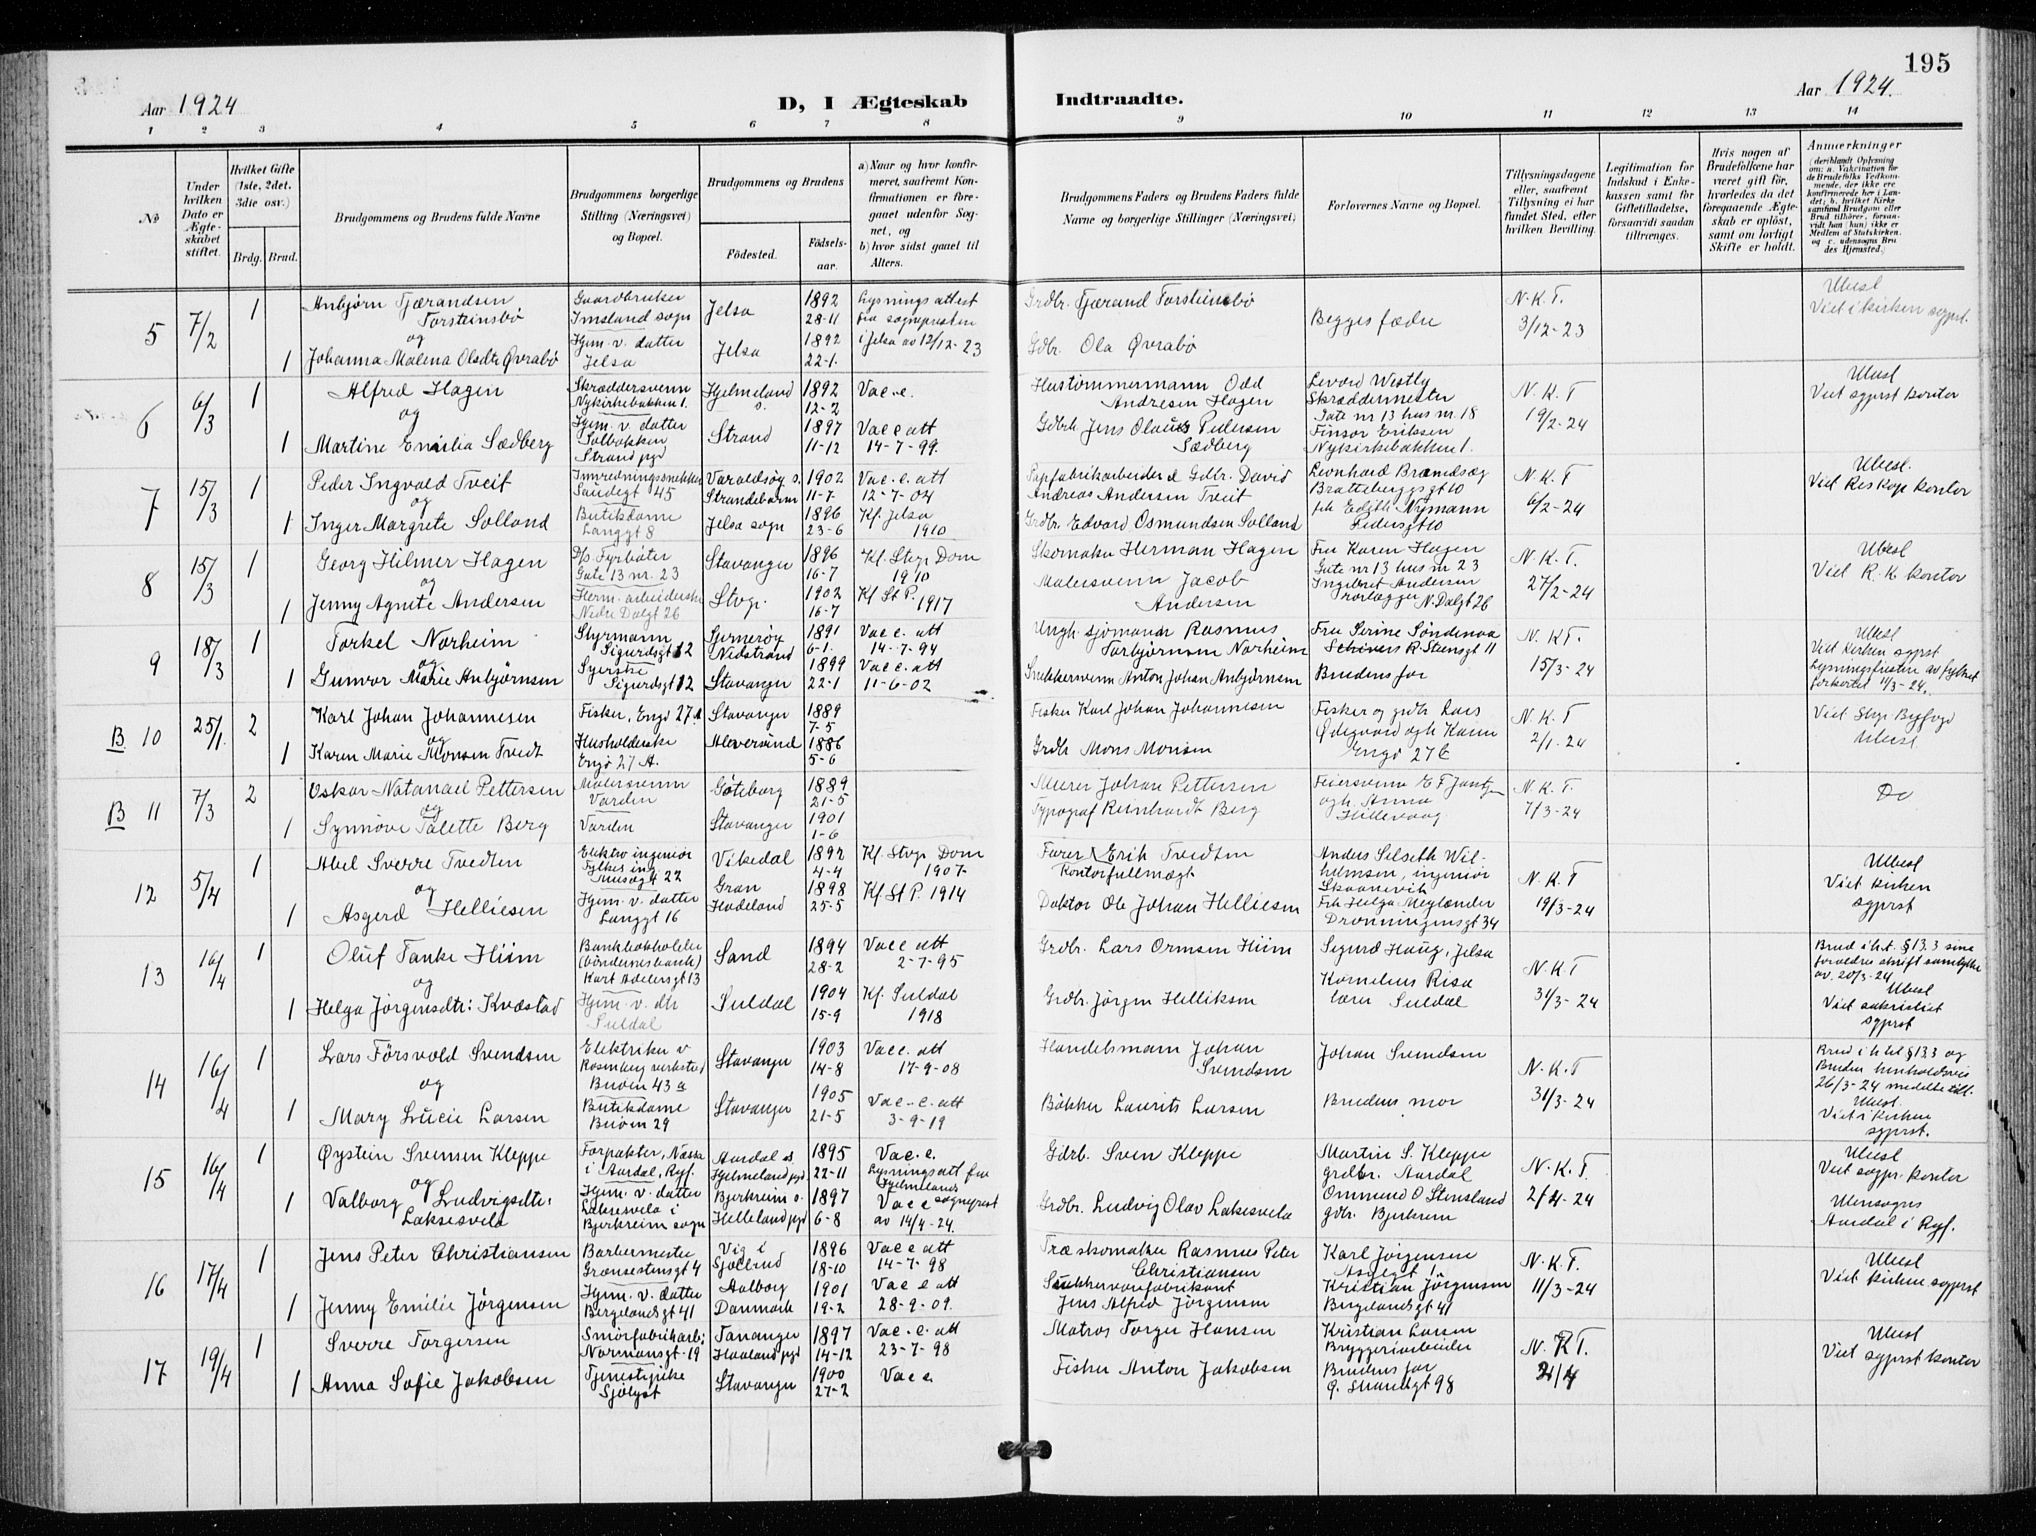 195
Aar 1924
D, I Ægteskab
Indtraadte.
Aar 1924.
1 2 3 4 5 6 7 8 9 10 11 12 13 14
No
Under hvilken Dato er Ægteskabet stiftet.
Hvilket Gifte (1ste, 2det, 3die osv.)
Brdg. Brud.
Brudgommens og Brudens fulde Navne
Brudgommens borgerlige Stilling (Næringsvei) og Bopæl.
Brudgommens og Brudens
Fødested.
Fødselsaar.
a) Naar og hvor konfirmeret, saafremt Konfirmationen er foregaaet udenfor Sognet, og
b) hvor sidst gaaet til Alters.
Brudgommens Faders og Brudens Faders fulde Navne og borgerlige Stillinger (Næringsvei)
Forlovernes Navne og Bopæl.
Tillysningsdagene eller, saafremt Tillysning ei har fundet Sted, efter hvilken Bevilling.
Legitimation for Indskud i Enkekassen samt for Giftetilladelse, forsaavidt saadan tiltrænges.
Hvis nogen af Brudefolkene har været gift før, hvorledes da det foregaaende Ægteskab er opløst, samt om lovligt Skifte er holdt.
Anmerkninger
(deriblandt Oplysning om: a. Vakcination for de Brudefolks Vedkommende, der ikke ere konfirmerede her i Landet; b. hvilket Kirkesamfund Brudgom eller Brud tilhører, forsaavidt han (hun) ikke er Medlem af Statskirken, og c. udensogns Brudes Hjemsted.)
5 7/2 1 Anbjørn Tjærandsen Torsteinsbø
Gaardbruker Imsland sogn
Jelsa 1892 28-11
Lysningsattest fra sognepresten i Jelsa av 12/12-23
Grdbr. Tjærand Torsteinsbø
Begges fædre
N.K.T. 3/12-23
Ubesl Viet i kirken sogprt.
og
1 Johanna Malena Olsdtr Øvrabø
Hjem. v. datter Jelsa
Jelsa 1892 22-1.
Gdbr. Ola Øvrabø
6 6/3 1 Alfred Hagen
Skræddersvenn Nykirkebakken 1.
Hjelmeland s. 1892 12-2
Vac.e.
Hustømmermann Odd Andresen Hagen
Levard Westly Skræddermester Gate nr 13 hus nr. 18
N.K.T 19/2-24
Ubesl Viet sgprst kontor
og
1 Martine Emilia Sædberg
Hjem. v. datter Solbakken Strand pgd
Strand 1897 11-12
Vacc att 14-7-99.
Gdbrk Jens Olaus Pedersen Sædberg
Finsor Eriksen Nykirkebakken 1.
7 15/3 1 Peder Ingvald Tveit
Innredningssnekker Sandegt 45
Varaldsøy s. Strandebarm 1902 11-7.
Vac.e. att 12-7-04
Papfabrikarbeider & Gdbr. David Andreas Andersen Tveit
Leonhard Brandsæg Bratteberggt 10
N.K.T 6/2-24
Ubesl. Viet Res kap kontor
og
1 Inger Margrete Solland
Butikdame Langgt 8
Jelsa sogn 1896 23-6
Kf. Jelsa 1910
Grdbr. Edvard Osmundsen Solland
frk Edith Nymann Pedersgt 10
8 15/3 1 Georg Hilmer Hagen
D/s Fyrbøter Gate 13 nr. 23
Stavanger 1896 16-7
Kf. Stvgr Dom 1910
Skomaker Herman Hagen
Fru Karen Hagen Gate nr 13 hus nr 23
N.K.T. 27/2-24
Ubesl Viet R.K kontor
og
1 Jenny Agnete Andersen
Herm. arbeiderske Nedre Dalgt 26
Stvgr. 1902 16-7
Kf St P. 1917
Malersvenn Jacob Andersen
Ingebret Andersen rørlægger N. Dalgt 26
9 18/3 1 Torkel Norheim
Styrmann Sigurdsgt 12
Sjernerøy Nedstrand 1891 6-1.
Vac e. att 14-7-94
Ungk. sjømann Rasmus Torbjørnsen Norheim
Fru Serine Søndenaa R. Steensgt 11
N.KT. 15/3-24
Ubesl Viet kirken sgprst Lysningsfristen av fylket forkortet 11/3-24.
og
1 Gunvor Marie Anbjørnsen
Syerske Sigurdsgt 12
Stavanger 1899 22-1
Vac e. att 11-6-02
Snekkersvenn Anton Johan Anbjørnsen
Brudens far
B. 10 25/1. 2 Karl Johan Johannesen
Fisker, Engø 27A
Stavanger 1889 7-5
Fisker Karl Johan Johannesen
Fisker og grdbr Lars Ødegaard og h. Karen Engø 27 C
N.K.T 2/1.24
Viet Stvgr Byfogd Ubesl
og
1 Karen Marie Monsen Tvedt
Husholderske Engø 27 A.
Alversund 1886 5-6
Grdbr Mons Monsen
B 11 7/3 2 Oskar Natanael Pettersen
Malersvenn Varden
Göteborg 1889 21-5
Murer Johan Pettersen
Feiersvenn E F Jantzen og h. Anna Hillevaag
N.K.T. 7/3-24
Do
og
1 Synnøve Talette Berg
Varden
Stavanger 1901 1-6
Typograf Reinhardt Berg
12 5/4 1 Abel Sverre Tvedten
Elektro ingeniør Fylkes ing Tunsgt 22
Vikedal 1892 4-4
Kf. Stvgr Dom 1907.
Furer Erik Tvedten Kontorfullmægt
Anders Selseth Wilhelmsen, ingeniør Skaanevik
N.K.T 19/3-24
Ubesl Viet kirken sgprst
og
1 Asgerd Helliesen
Hjem. v. datter Langgt 16
Gran Hadeland 1898 25-5
Kf St P. 1914
Doktor Ole Johan Helliesen
Frk Helga Meglænder Dronningensgt 34
13 16/4 1 Oluf Tanke Hiim
Bankbokholder (bøndernes bank) Kort Adelersgt 13
Sand 1894 28-2
Vac e att 2-7-95
Grdbr. Lars Ormsen Hiim
Sigurd Haug, Jelsa
N.K.T 31/3-24
Brud i h.t. §13.3 sine forældres skrift samtykke av. 20/3-24 Ubesl Viet sakristiet sgprst
og
1 Helga Jørgensdtr: Kvæstad
Hjem. v. dtr Suldal
Suldal 1904 15-9
Kf. Suldal 1918
Grdbr. Jörgen Helliksen
Kornelius Risa Suldal
14 16/4 1 Lars Førsvold Svendsen
Elektriker v Rosenberg verksted Buøen 43 a
Stavanger 1903 14-8
Vac e. att 17-9-08
Handelsmann Johan Svendsen
Johan Svendsen
N.K.T 31/3-24
Brud i h.til §13.3 og Bruden henholdsvis 26/3-24 meddelte till. Ubesl. Viet i kirken sgprst.
og
1 Mary Lucie Larsen
Butikdame Buøen 29
Stavanger 1905 21-5
Vac.e. att 3-9-19
Bøkker Laurits Larsen
Brudens mor
15 16/4 1 Øystein Svensen Kleppe
Forpakter, Næssa i Aardal, Ryf.
Aardal s. Hjelmeland pgd 1895 22-11
Vac.e. Lysningsatt fra Hjelmelands sogneprest av 14/4-24.
Gdrb. Sven Kleppe
Martin S. Kleppe grdbr. Aardal
N.K.T. 2/4-24
Ubesl Viet sogpr. kontor
og
1 Valborg Ludvigsdtr: Laksesvela
Hjem. v. datter Laksesvela i Bjerkreim sogn
Bjerkreim s. Helleland pgd 1897 6-8
Vac e
Grdbr. Ludvig Olav Laksesvela
Ommund O Stensland gdbr. Bjerkrem
Utensogns Aardal i Ryf.
16 17/4 1 Jens Peter Christiansen
Barbermester Grønsestensgt 4
Vig i Sjælland 1896 18-10
Vac e att 14-7-98
Træskomaker Rasmus Peter Christiansen
Karl Jørgensen Asylgt 1
N.K.T. 11/3-24
Ubesl Viet kirken sgprst
1 Jenny Emilie Jørgensen
Hjem. v. datter Bergelandsgt 41
Aalborg Danmark 1901 19-2
Vac e att 28-9-09.
Sukkervarefabrikant Jens Alfred Jørgensen
Kristian Jørgensen Bergelandsgt 41
17 19/4 1 Sverre Torgersen
Smørfabrikarb: Normansgt-19
Tananger Haaland pgd 1897 14-12
Vac.e. att 23-7-98
Matros Torger Hansen
Kristian Larsen Bryggeriarbeider
N.K.T. 31/4
Ubesl Viet sgprst kontor
1 Anna Sofie Jakobsen
Tjenestepike Sjølyst
Stavanger 1900 27-2
Vac e.
Fisker Anton Jakobsen
Brudens far Ø. Strandgt 98